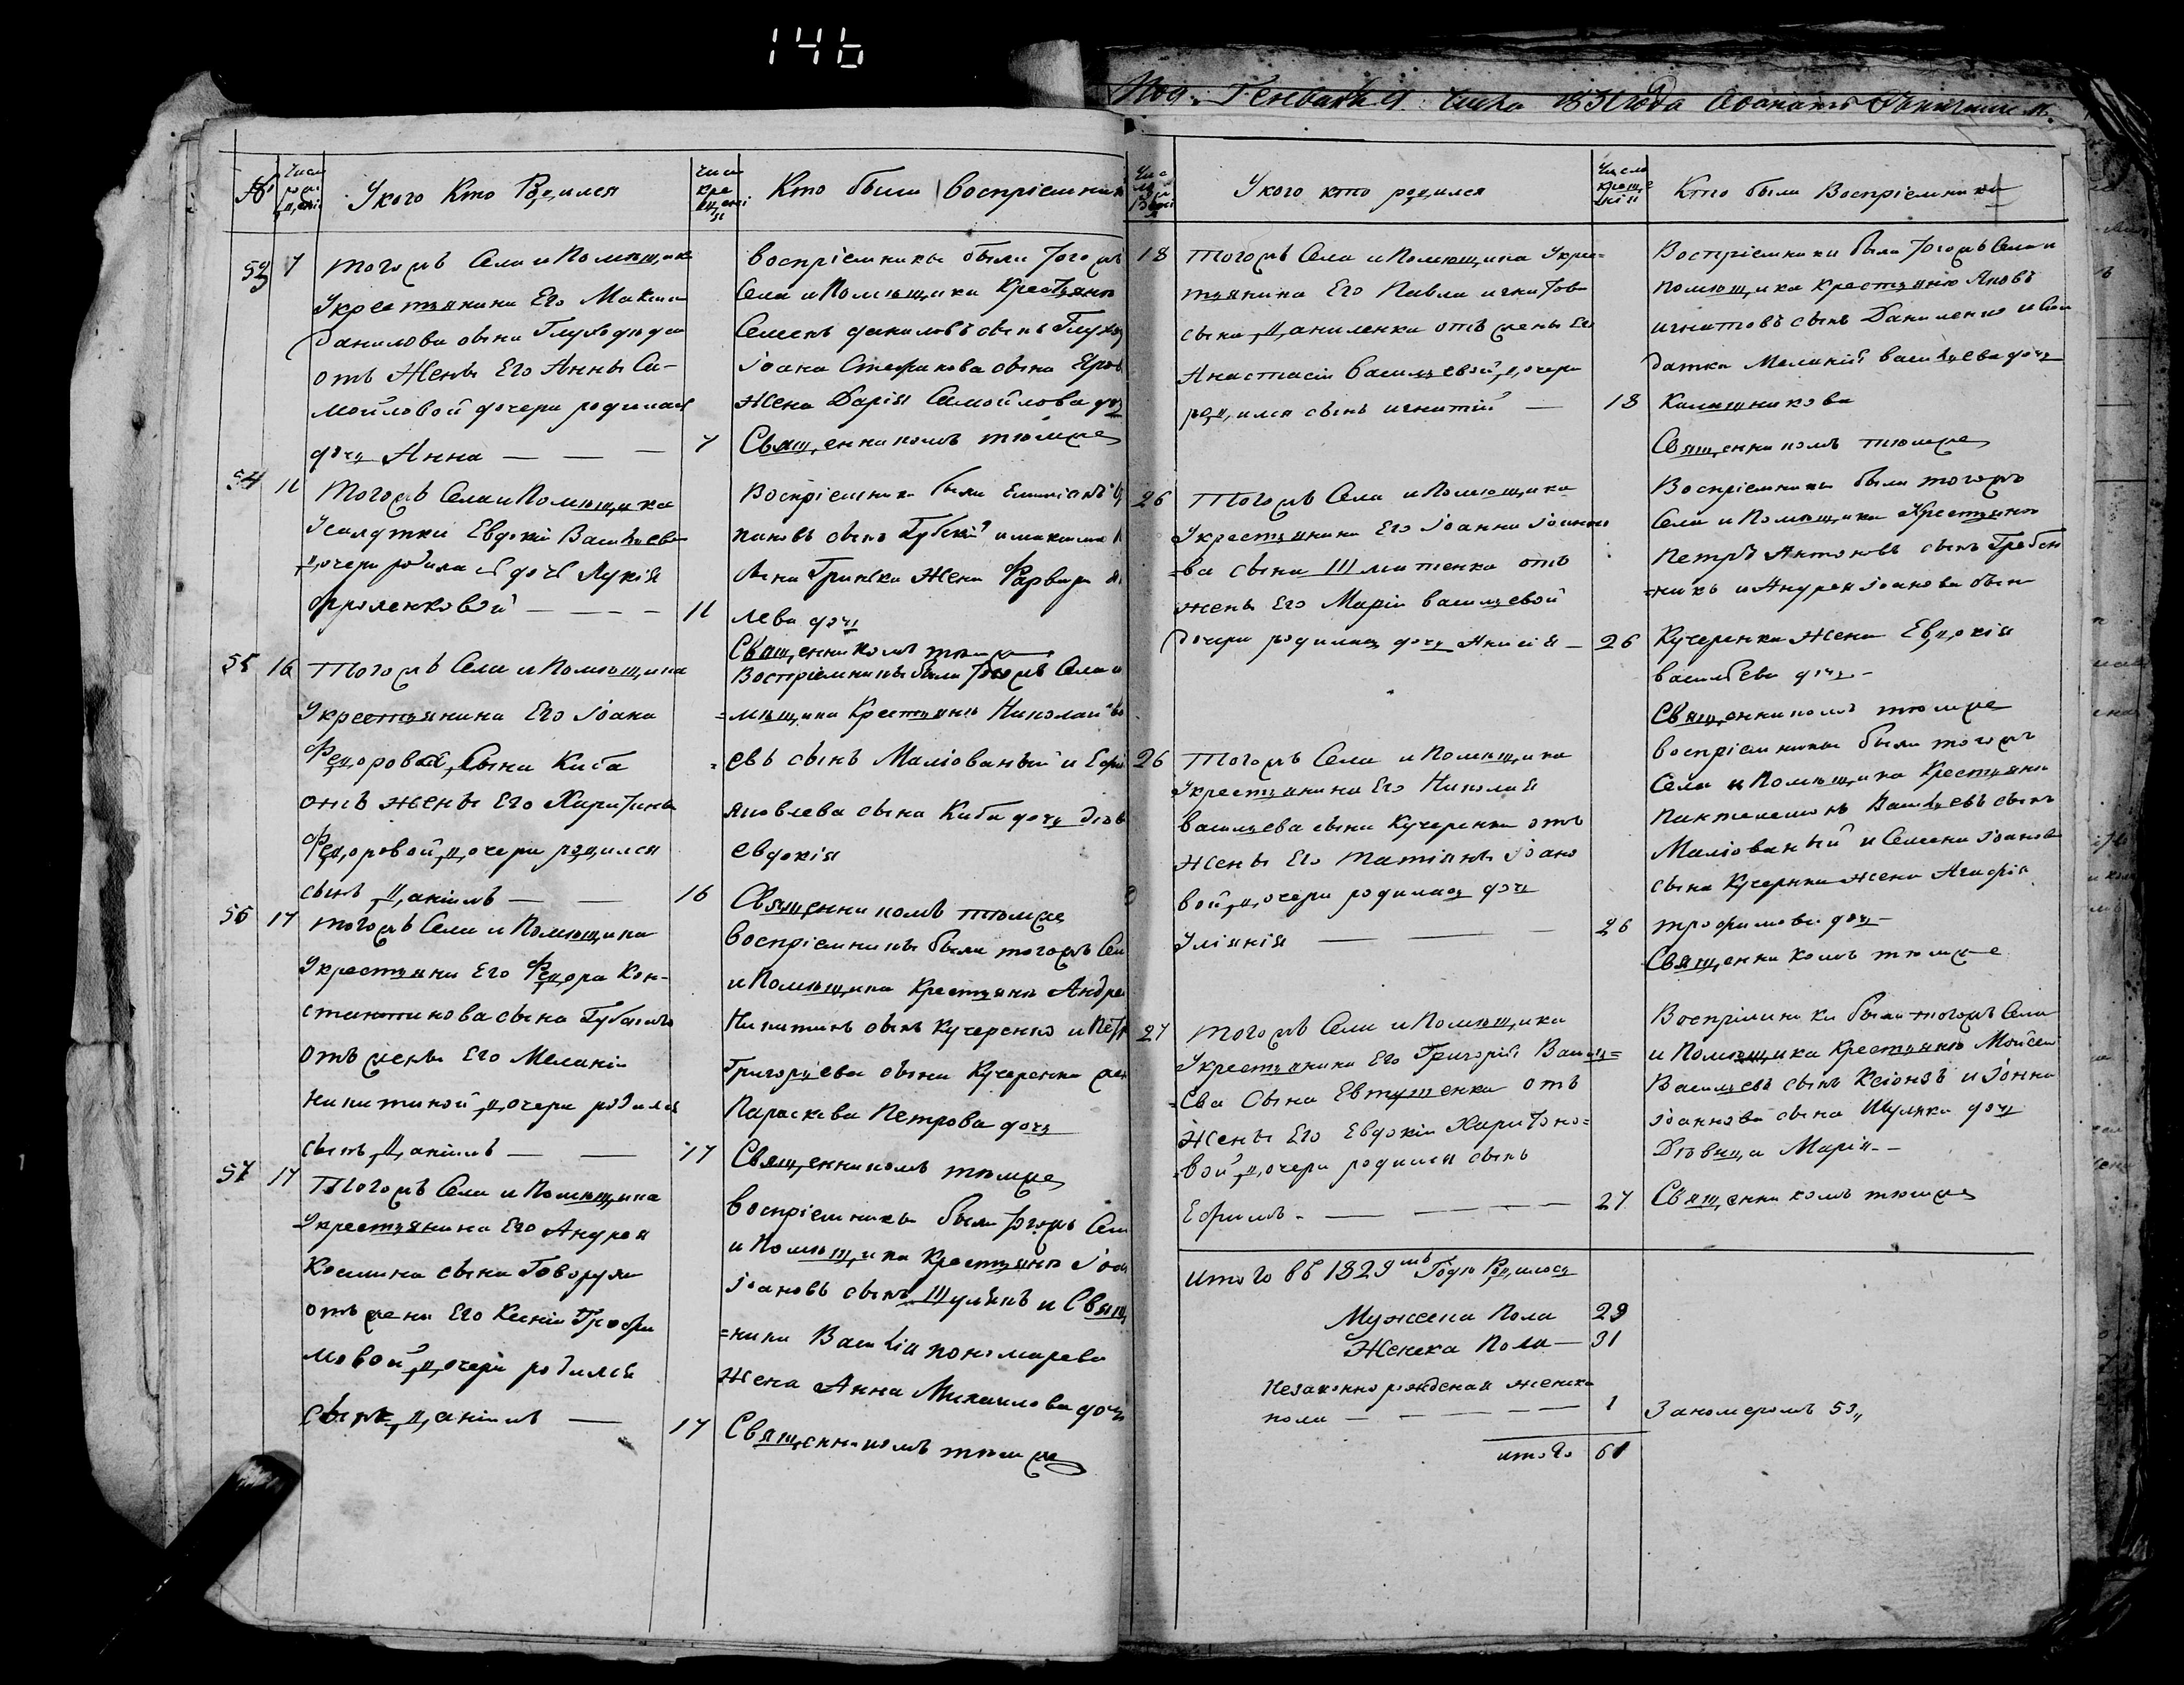 146
Генваря 9 числа 1831 года
№
Числ рожденi
У кого Кто Родился
Числ крещенiя
Кто были воспрiемник
53 7
тогожъ Села и Помѣщика
Укрестьянина Его Максима
Данилова сына
отъ Жены Его Анны Са-
мойловой дочери родилась
дочь Анна — — — 7
воспрiемники были тогожъ
Села и Помѣщика Крестьяне
Семенъ даниловъ сынъ
Iоана Стефанова сына
жена Дарiя Самойлова дочь
Священникомъ тѣмже
54 11
Тогожъ Села и Помѣщика
Усалдтки Евдокiи Василiева
дочери родилась дочь Лукiя
— — — 11
Воспрiемники были
повъ сынъ Губскiй и максима
сына Гринька Жена Варвара
лева дочь
Священникомъ тѣмже
55 16
Тогожъ Села и Помѣщика
Укрестьянина Его Iоана
Федорова Сына Киба
отъ жены Его Харитины
Федоровой дочери родился
сынъ Данiилъ — — 16
Воспрiемники были тогожъ Села и
=мѣщика Крестьяне Николай
=евъ сынъ Малiованый и
Яковлева сына Киба дочь
евдокiя
Священникомъ тѣмже
56 17
тогожъ Села и Помѣщика
Укрестьяни Его Федора Кон-
стантинова сына
отъ жены Его Меланiи
Никитиной дочери родился
сынъ Данiилъ — — 17
воспрiемники были тогожъ Се
и Помѣщика Крестьяне Андре
Никитинъ сынъ Кучеренко и Пет
Григорьева сына Кучеренка
Параскева Петрова дочь
Священникомъ тѣмже
57 17
Тогожъ Села и Помѣщика
Укрестьянина Его Андрея
Космина сына Говоруя
отъ жены Его Ксенiи Трофи
мовой дочери родился
сынъ Данiилъ — 17
воспрiемники были тогожъ Сел
и Помѣщика Крестьяне Iоа
Iоановъ сынъ Шулькъ и Свящ
=ника Василiя пономарева
жена Анна Михаилова дочь
Священникомъ тѣмже
У кого кто родился
Число крещенiя
Кто были Воспрiемники
18
Тогожъ Села и Помѣщика Укрес=
тьянина Его Павла игнатов
сына Даниленка отъ жены Ег
Анастасiи Васильевой дочери
родился сынъ игнатiй — 18
Воспрiемники были тогожъ Села и
помѣщика крестьяне Яковъ
игнатовъ сынъ Даниленко и Сал
датка Меланiя васильева дочь
Калашникова
Священникомъ тѣмже
26
Тогожъ Села и Помѣщика
Укрестьянина Его Iоанна Iоанно
=ва сына отъ
жены Его Марiи васильевой
дочери родилась дочь Анисiя — 26
Воспрiемники были тогожъ
Села и Помѣщика Крестьяне
Петръ Антоновъ сынъ Гребен
=никъ и Андрея Iоанова сына
Кучеренка жена Евдокiя
васильева дочь —
Священникомъ тѣмже
26
Тогожъ Села и Помѣщика
Укрестьянина Его Николая
васильева сына Кучеренка отъ
жены Его Татiяны Iоано
вой дочери родилась дочь
Улiянiя — — — 26
воспрiемники были тогожъ
Села и Помѣщика Крестьяне
Пантелемонъ Васильевъ сынъ
Малiованый и Семена Iоанова
сына Кучеренка жена Агафiя
трофимова дочь —
Священникомъ тѣмже
27
Тогожъ Села и Помѣщика
Укрестьянина Его Григорiя Василь=
=ева Сына Евтушенка отъ
Жены Его Евдокiи Харитоно=
=вой дочери родился сынъ
Ефимъ. — — — — 27
Воспрiемники были тогожъ Села
и Помѣщика Крестьяне Мойсей
Васильевъ сынъ и Iоанна
Iоаннова сына Шулька дочь
Дѣвица Марiя —
Священникомъ тѣмже
итого въ 1829мъ Годѣ Родилось
Мужеска Пола 29
Женска Пола — 31
Незаконно рожденая женска
пола — — — — 1 Заномеромъ 53„
итого 61